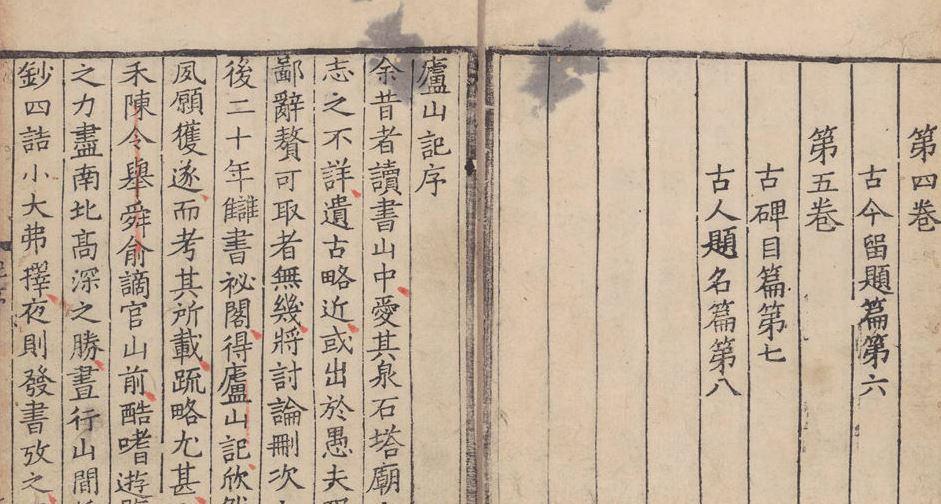 第四卷
古今留題篇第六
第五卷
古碑目篇第七
古人題名篇第八
廬山記序
余昔者讀書山中愛其泉石塔廟
志之不詳遺古略近或出於愚夫
鄙辭贅可取者無幾將討論刪次
後二十年讎書祕閣得廬山記欣
夙願獲遂而考其所載疏略尤甚
禾陳令舉舜俞謫官山前酷嗜遊
之力盡南北高深之勝晝行山間
鈔四詰小大弗擇夜則發書攷之